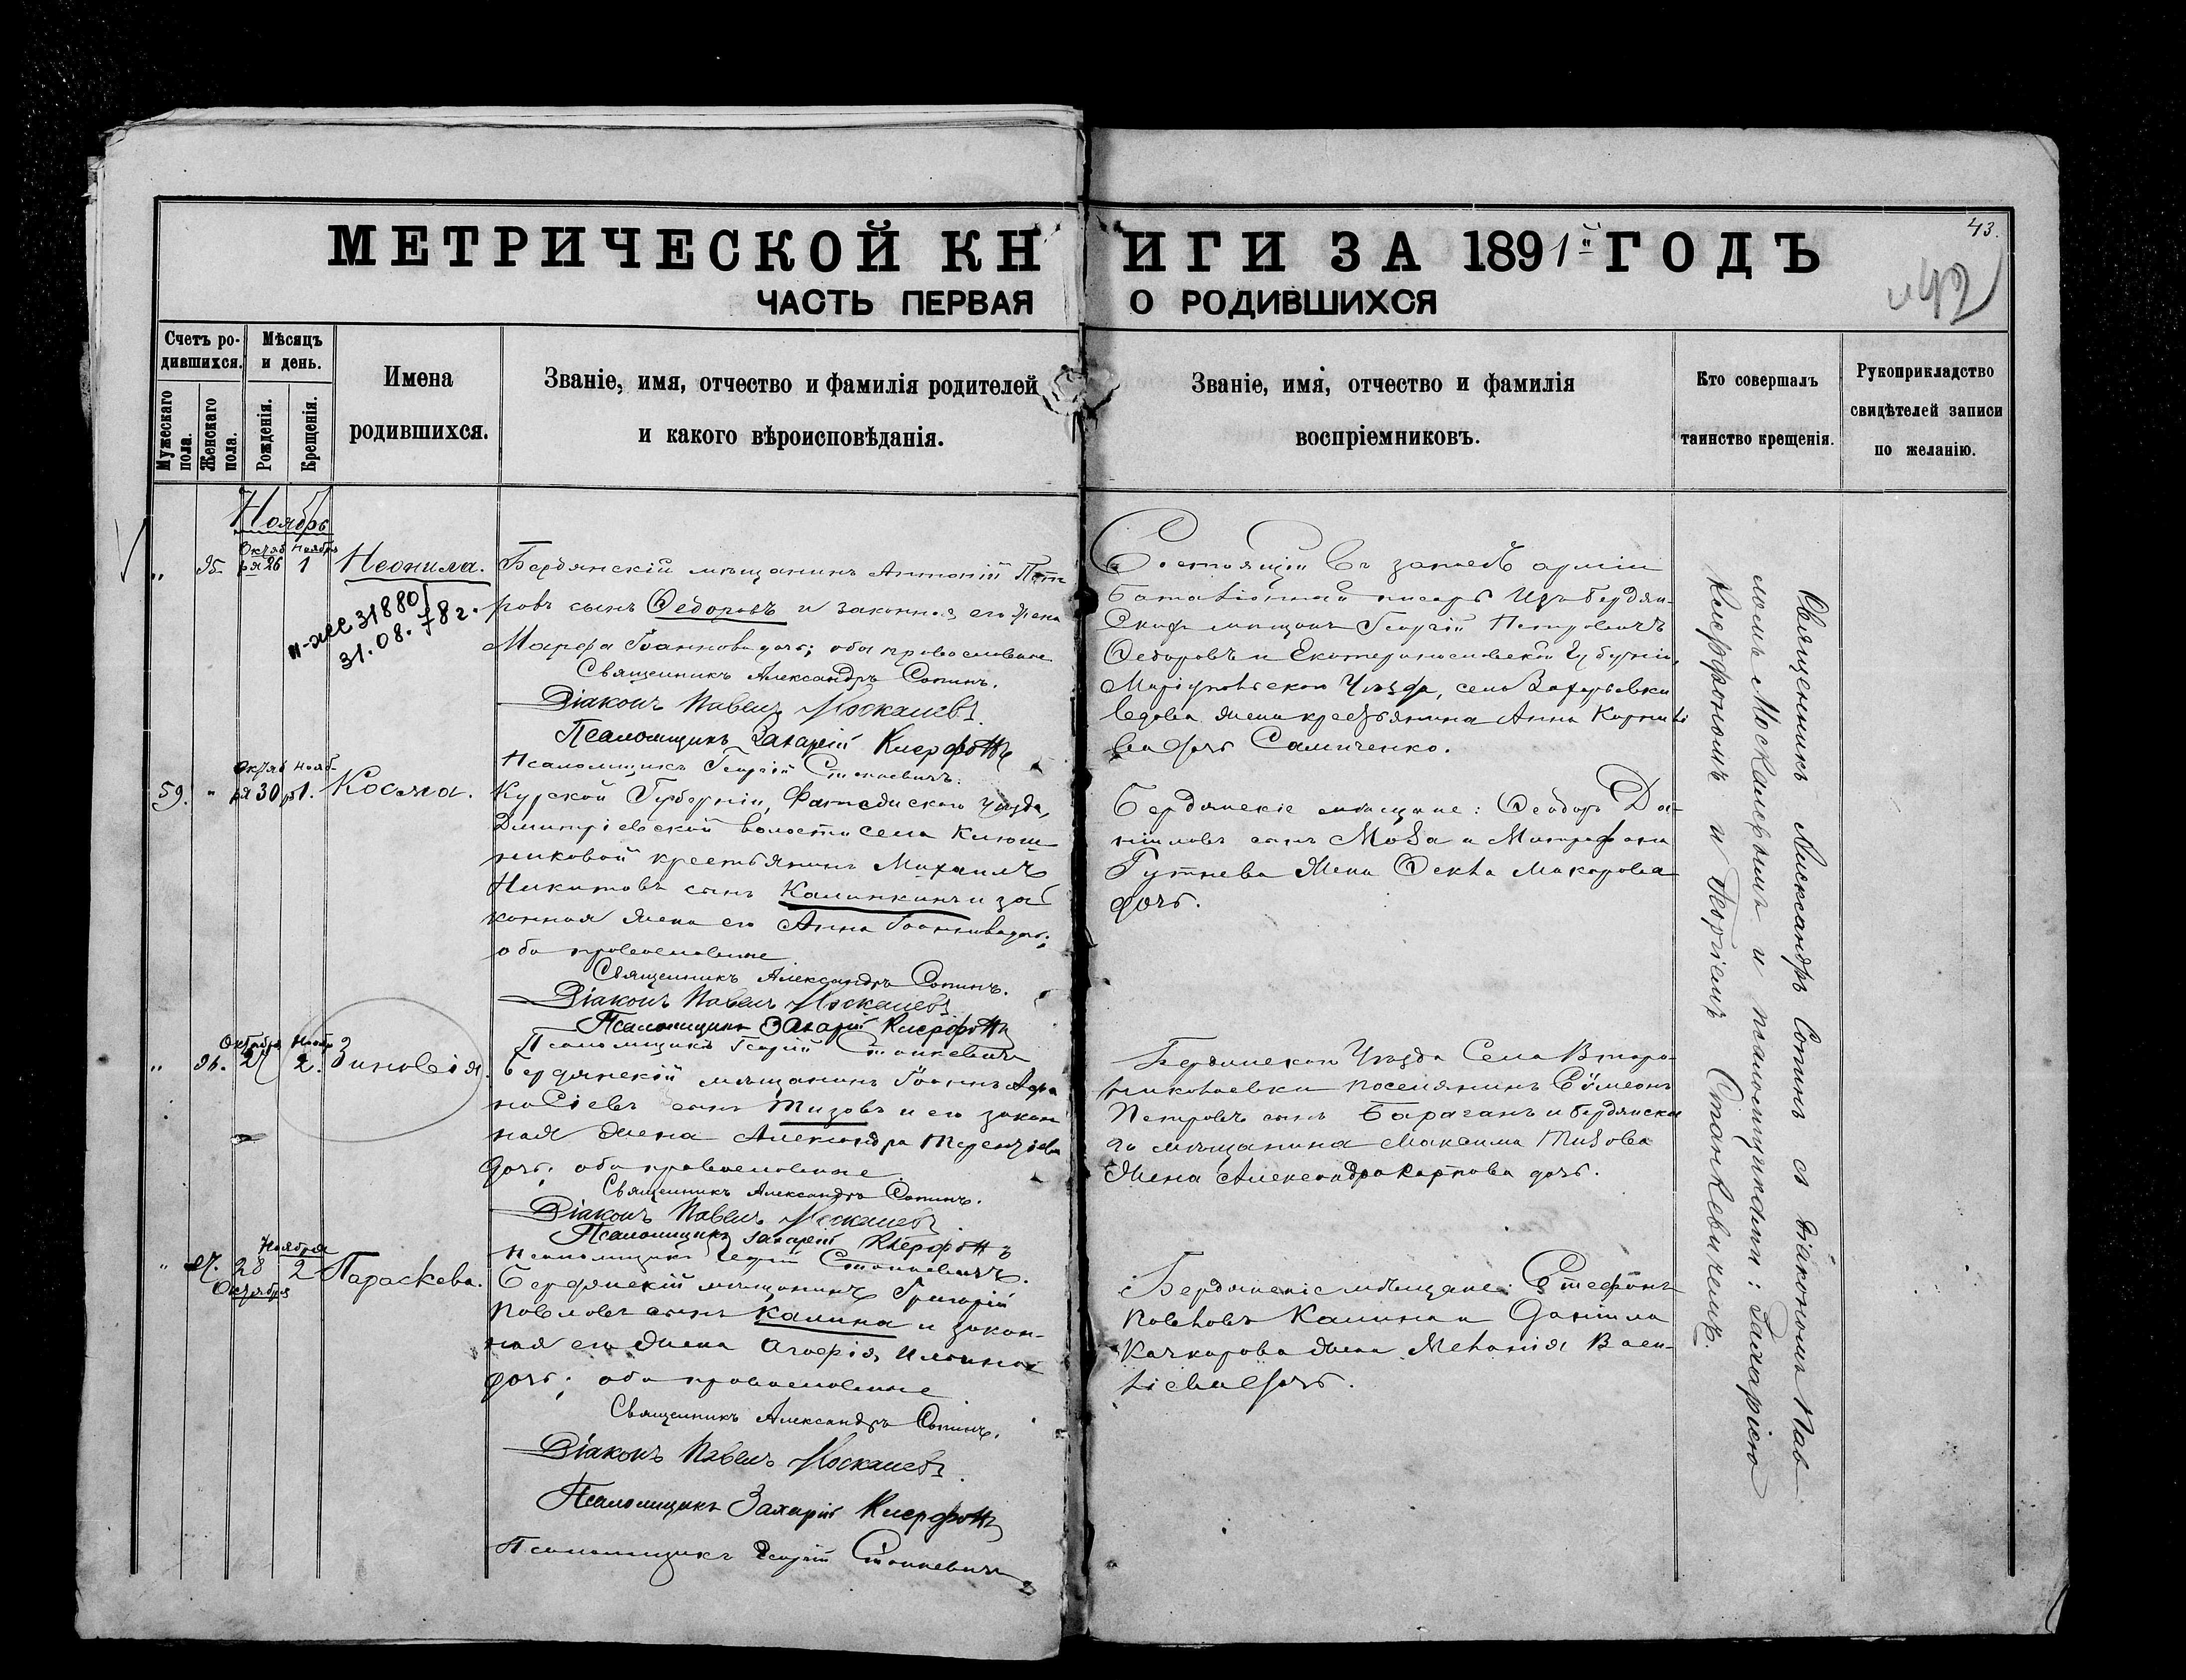 43.
МЕТРИЧЕСКОЙ КНИГИ ЗА 1891й ГОДЪ
42
ЧАСТЬ ПЕРВАЯ О РОДИВШИХСЯ
Счетъ ро-
дившихся.
Мужескаго пола.
Женскаго пола.
Мѣсяцъ
и день.
Рожденія.
Крещенія.
Имена
родившихся.
Званіе, имя, отчество и фамилія родителей
и какого вѣроисповѣданія.
Званіе, имя, отчество и фамилія
воспріемниковъ.
Кто совершалъ
таинство крещенія.
Рукоприкладство
свидѣтелей записи
по желанію.
Ноябрь
" 95. Октяб
ря 26 Ноября
1 Неонила.
31880
31.08.78г.
Бердянскій мѣщанинъ Антоній Пет
ровъ сынъ Ѳедоровъ и законная его жена
Марѳа Іоаннова дочь; оба православные
Священникъ Александръ Сопинъ.
Діаконъ Павелъ Москалевъ.
Псаломщикъ Захарій Ксерфонтъ
Псаломщикъ Георгій Станкевичъ.
Состоящій въ запасѣ арміи
баталіонный писарь изъ бердян-
скихъ мѣщанъ Георгій Петровичъ
Ѳедоровъ и Екатеринославской губерніи,
Маріупольскаго уѣзда, села Захарьевки
вдова жена крестьянина Анна Корнилі
ева дочь Самиченко.
59. " Октяб
ря 30 Нояб-
ря 1. Косма.
Курской Губерніи, Фатежскаго уѣзда,
Дмитріевской волости села Ключ
никовой крестьянинъ Михаилъ
Никитовъ сынъ Калинкинъ и за
конная жена его Анна Іоаннова дочь;
оба православные
Священникъ Александръ Сопинъ.
Діаконъ Павелъ Москалевъ
Псаломщикъ Захарій Ксерфонтъ
Псаломщикъ Георгій Станкевичъ
Бердянскіе мѣщане: Ѳеодоръ Да-
ніиловъ сынъ Моза и Митрофана
Гутнева жена Ѳекла Макарова
дочь.
" 96. Октября
27 Ноября
2. Зиновія
Бердянскій мѣщанинъ Іоаннъ Аѳа
насіевъ сынъ Тизовъ и его закон
ная жена Александра Терентіева
дочь; оба православные
Священникъ Александръ Сопинъ.
Діаконъ Павелъ Москалевъ
Псаломщикъ Захарій Ксерфонтъ
Псаломщикъ Георгій Станкевичъ.
Бердянскаго Уѣзда Села Второ-
николаевки поселянинъ Сѵмеонъ
Петровъ сынъ Бараганъ и бердянска
го мѣщанина Максима Тизова
жена Александра Карпова дочь.
" 97. 28
Октября Ноября
2 Параскева.
Бердянскій мѣщанинъ Григорій
Павловъ сынъ Калина и закон-
ная его жена Агаѳія Ильина
дочь; оба православные
Священникъ Александръ Сопинъ.
Діаконъ Павелъ Москалевъ.
Псаломщикъ Захарій Ксерфонтъ
Псаломщикъ Георгій Станкевичъ
Бердянскіе мѣщане: Стефанъ
Павловъ Калина и Даніила
Качкарова жена Меланія Васи-
ліева дочь.
Священникъ Александръ Сопинъ съ діакономъ Пав
ломъ Москалевымъ и псаломщиками: Захаріею
Ксерфонтомъ и Георгіемъ Станкевичемъ.